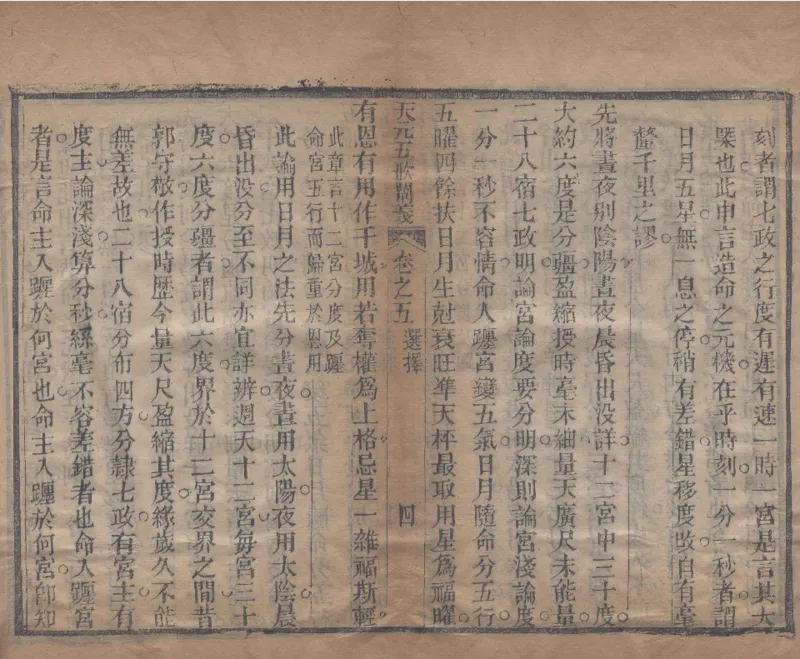 刻者謂七政之行度有遲有速一時一宮是言其大
槩也此申言造命之元機在乎時刻一分一秒者謂
日月五星無一息之停稍有差錯星移度改自有毫
釐千里之謬
先將晝夜別陰陽晝夜晨昏出没詳十二宮中三十度
大約六度是分疆盈縮授時毫末細量天廣尺未能量
二十八宿七政明論宮論度要分明深則論宮淺論度
一分一秒不容情命人躔宮變五氣日月隨命分五行
五曜四餘扶日月生尅衰旺準天枰最取用星為福曜
天元五歌闡義 卷之五 選擇 四
有恩有用作干城用若奪權為上格忌星一雜福斯輕
此章言十二宮分度及躔
命宮五行而歸重於恩用
此論用日月之法先分晝夜晝用太陽夜用太陰晨
昏出没分至不同亦宜詳辨週天十二宮每宮三十
度六度分疆者謂此六度界於十二宮交界之間昔
郭守敬作授時歷今量天尺盈縮其度緣歲久不能
無差故也二十八宿分布四方分隸七政有宮主有
度主論深淺算分秒絲毫不容差錯者也命入躔宮
者是言命主入躔於何宮也命主入躔於何宮卽知